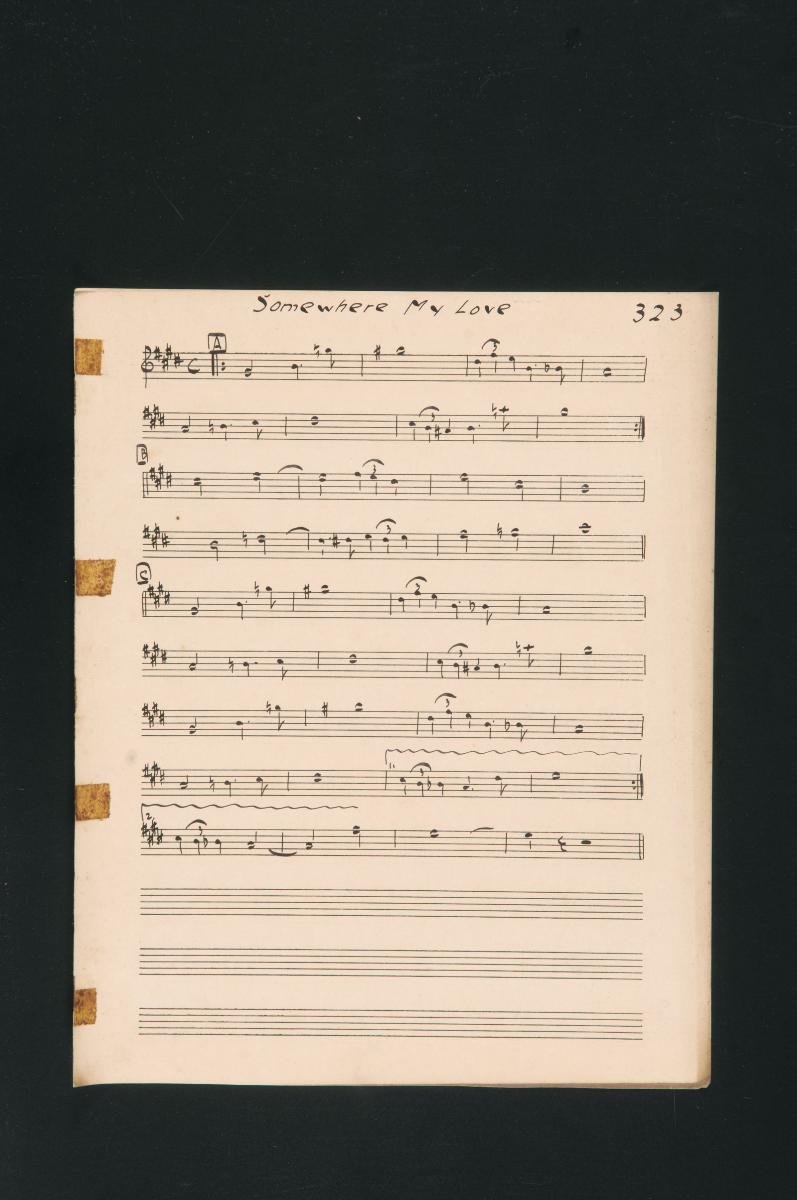 Somewhere My Love 323
A
3
3
B
3
3
C
3
3
3
1.
3
2.
3